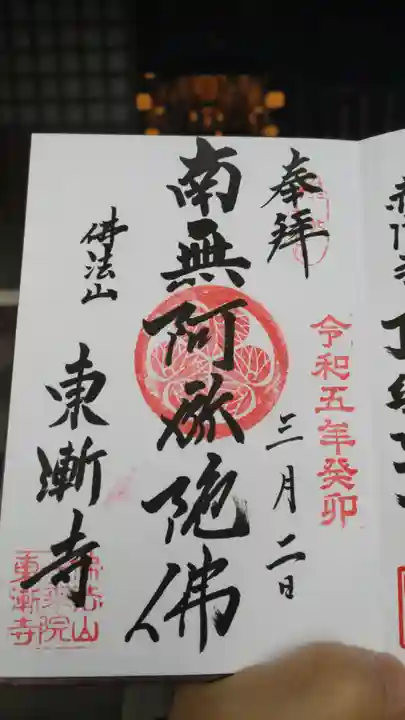 奉拝
令和五年癸卯
三月二日
南無阿弥陀佛
佛法山
東漸寺
佛法山
東漸寺